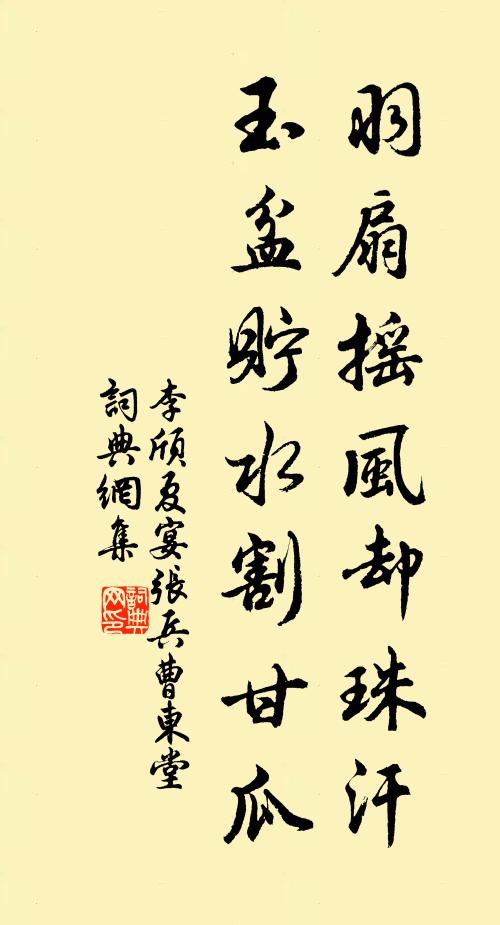 羽扇搖風却珠汗
玉盆貯水割甘瓜
李頎夏宴張兵曹東堂
詞典網集
詞典
网印